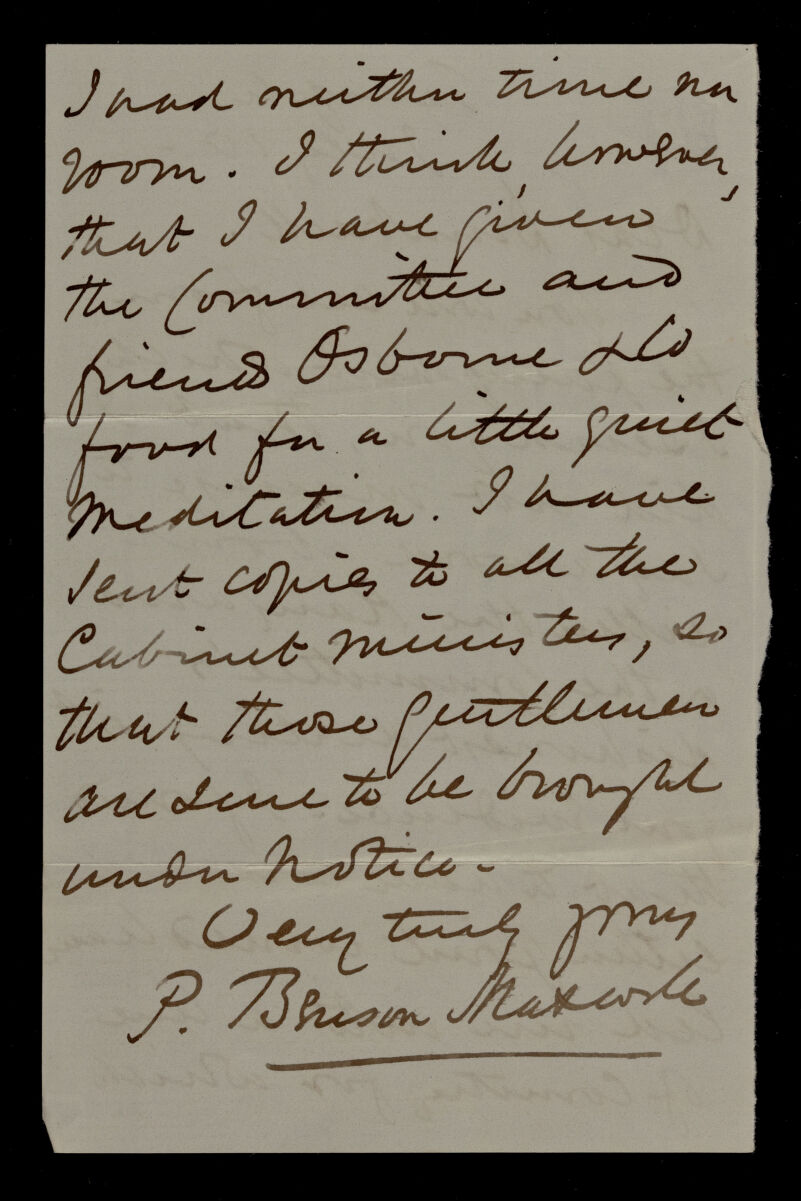 I had neither time nor
room. I think, however,
that I have given
the Committee and
friends Osborne & Co
food for a little quiet
meditation. I have
sent copies to all the
Cabinet Ministers, so
that those gentlemen
are sure to be brought
under notice.
Very truly yours
P. Benson Maxwell